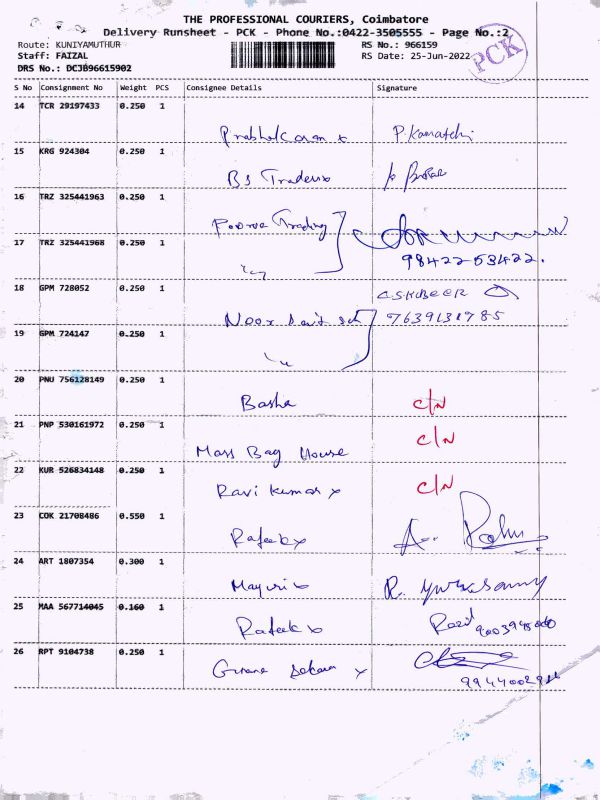 THE PROFESSIONAL COURIERS, Coimbatore
Delivery Runsheet - PCK - Phone No.:0422-3505555 - Page No.:2
Route: KUNIYAMUTHUR RS No.: 966159
Staff: FAIZAL RS Date: 25-Jun-2022
DRS No.: DCJB96615902
PCK
S No Consignment No Weight PCS Consignee Details Signature
14 TCR 29197433 0.250 1
Prabhakaran x P. Kamatchi
15 KRG 924304 0.250 1
BS Traders
16 TRZ 325441963 0.250 1
Poorva Trading
17 TRZ 325441968 0.250 1
9842253422.
18 GPM 728052 0.250 1
Noor 7639131785
19 GPM 724147 0.250 1
20 PNU 756128149 0.250 1
Basha C/N
21 PNP 530161972 0.250 1
Mass Bag House C/N
22 KUR 526834148 0.250 1
Ravi Kumar x C/N
23 COK 21708486 0.550 1
Rafeek x
24 ART 1807354 0.300 1
Mayuri R.
25 MAA 567714045 0.160 1
Rafeek
26 RPT 9104738 0.250 1
Guna Sekaran x